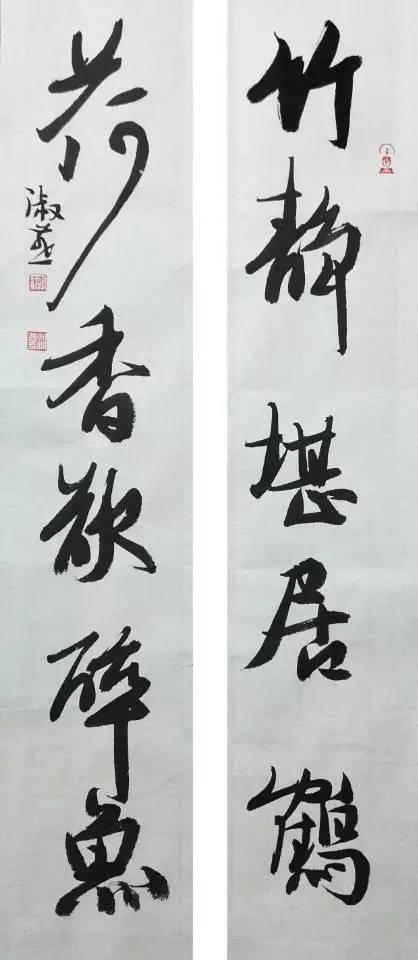 竹静堪居鹤
荷香欲醉鱼
淑